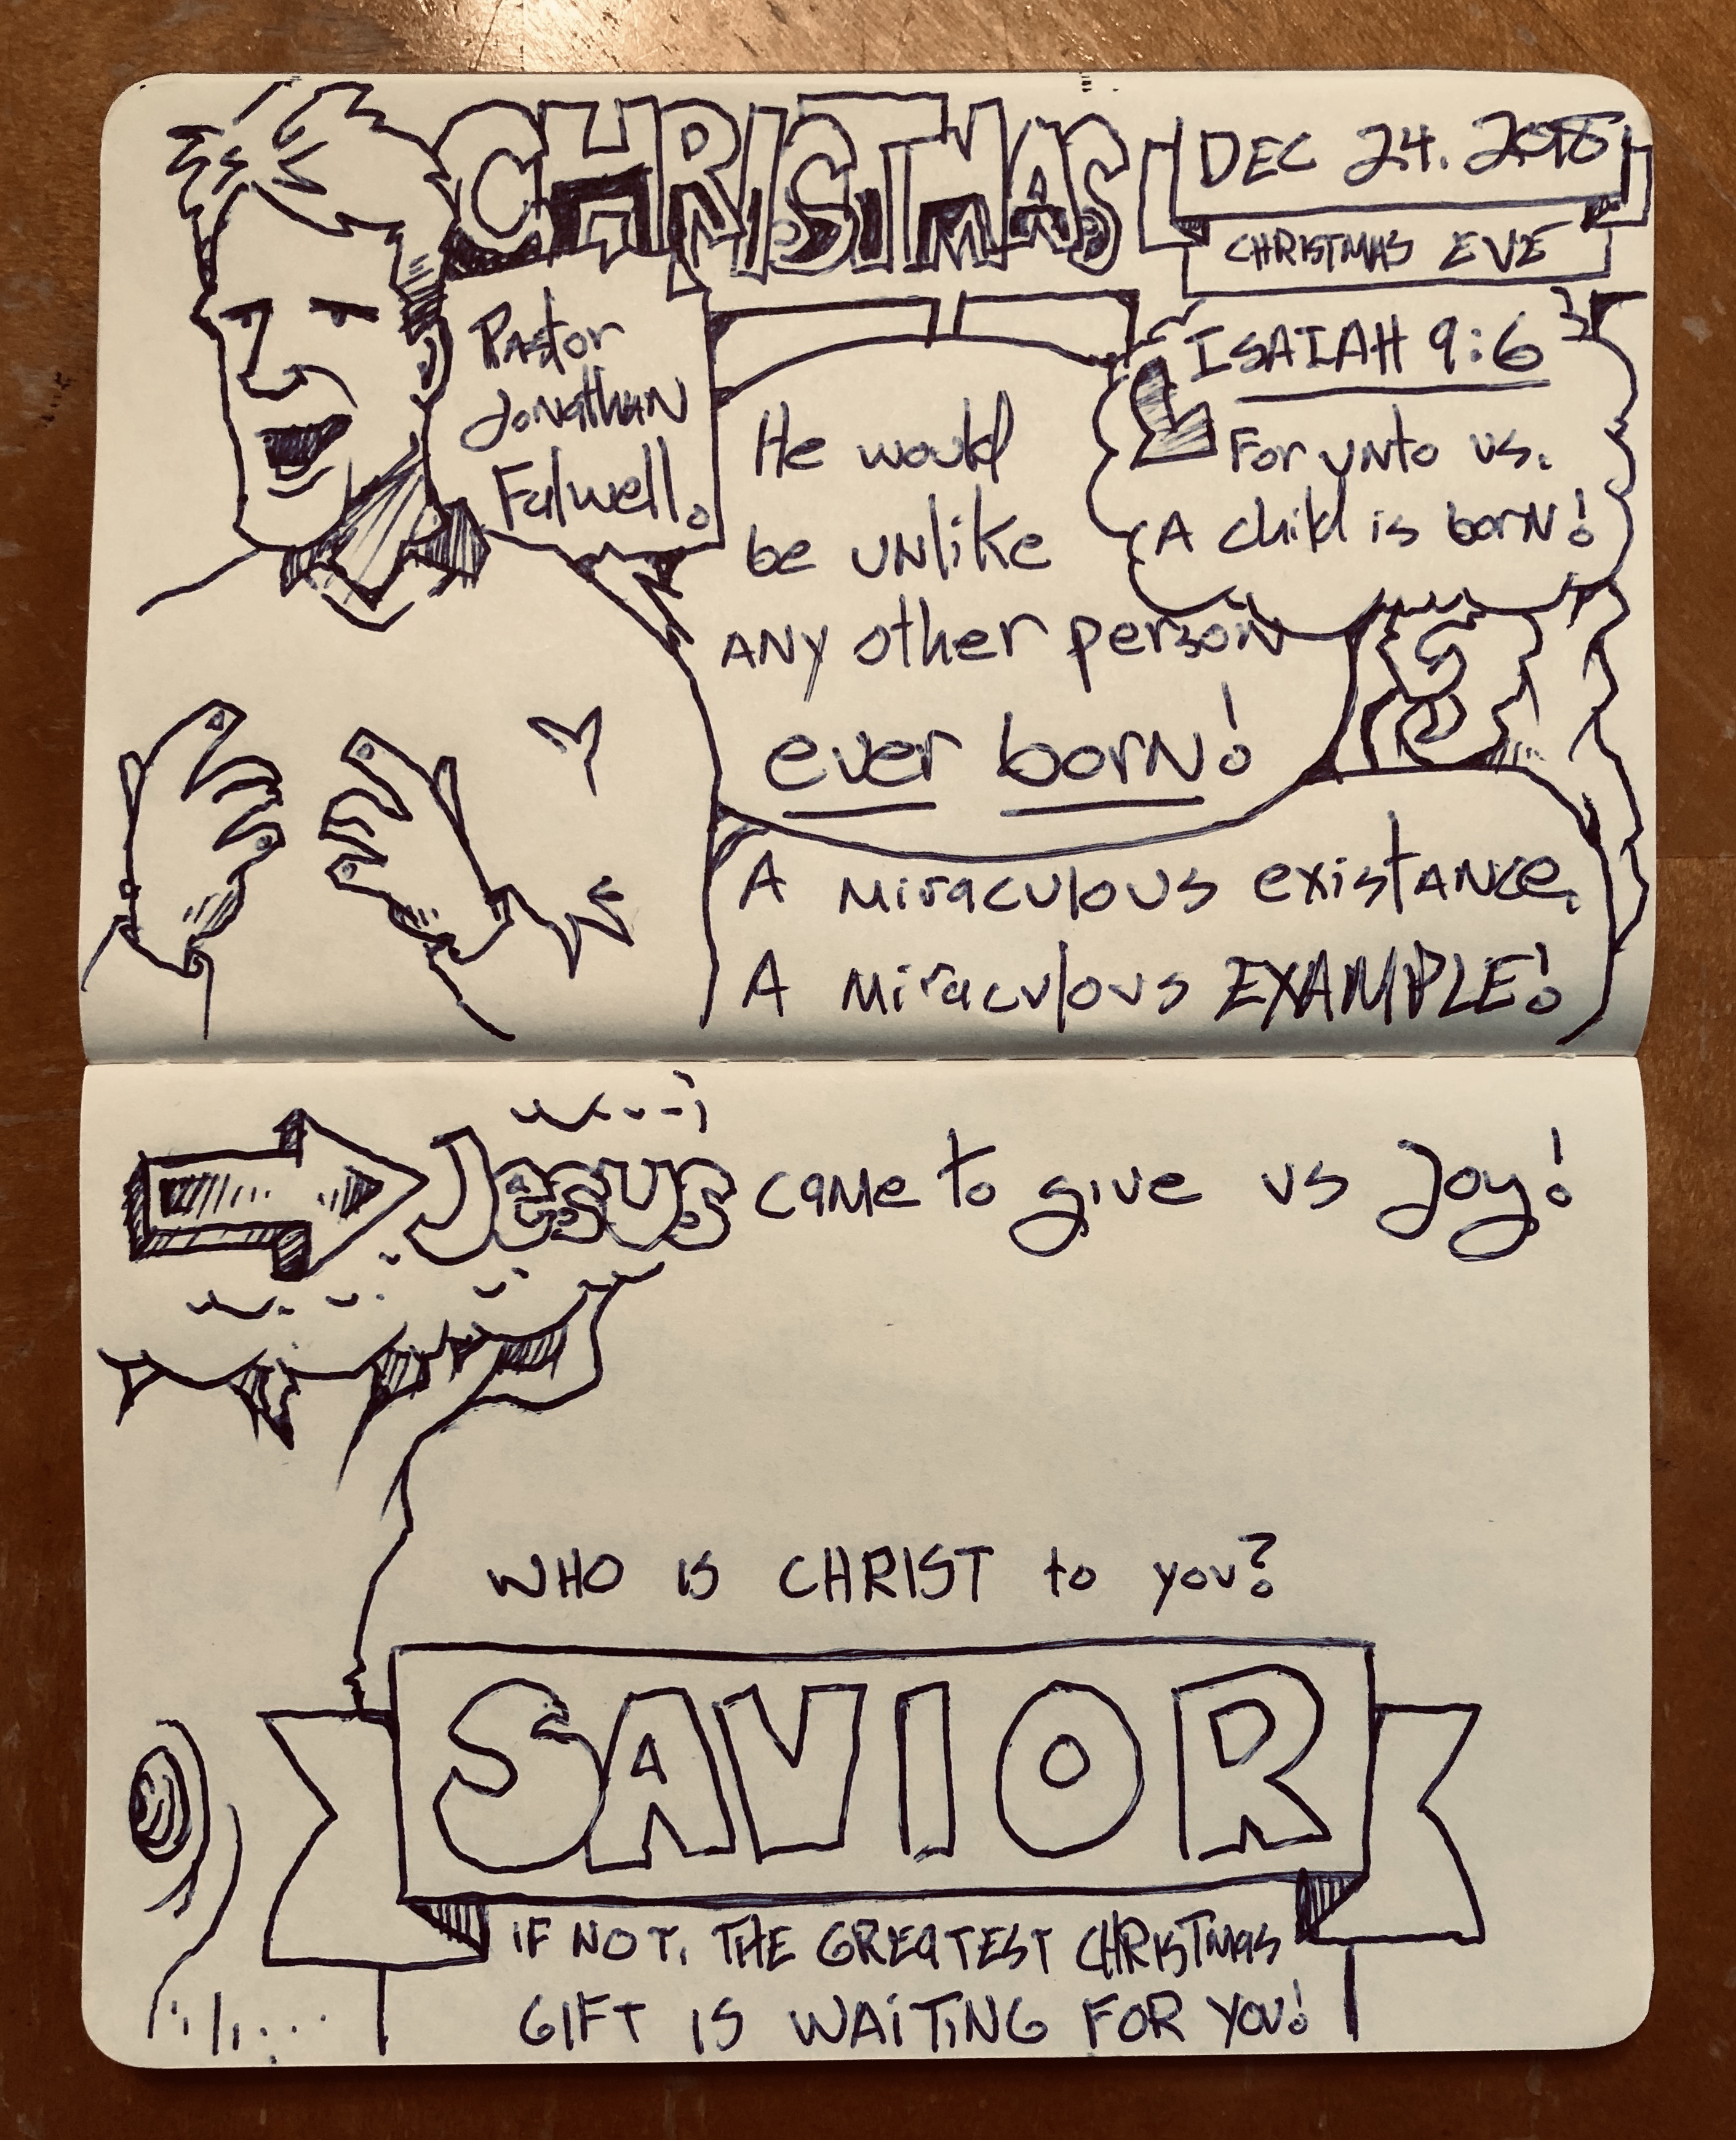 CHRISTMAS
DEC 24. 2018
CHRISTMAS EVE
Pastor
Jonathan
Falwell.
ISAIAH 9:6
For unto us.
A child is born!
He would
be unlike
ANY other person
ever born!
A miraculous existance.
A miraculous EXAMPLE!
Jesus came to give us Joy!
WHO IS CHRIST to you?
SAVIOR
IF NOT. THE GREATEST CHRISTMAS
GIFT IS WAITING FOR YOU!